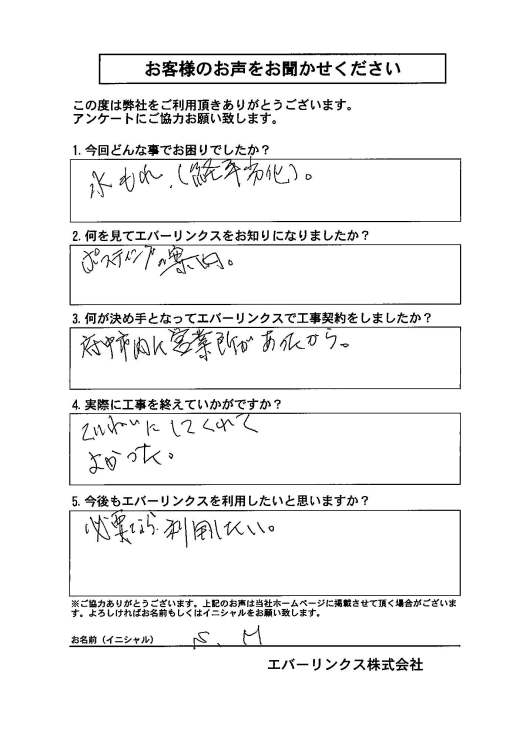 お客様のお声をお聞かせください
この度は弊社をご利用頂きありがとうございます。
アンケートにご協力お願い致します。
1. 今回どんな事でお困りでしたか？
水もれ、(経年劣化)。
2. 何を見てエバーリンクスをお知りになりましたか？
ポスティングの案内。
3. 何が決め手となってエバーリンクスで工事契約をしましたか？
府中市内に営業所があったから。
4. 実際に工事を終えていかがですか？
ていねいにしてくれて
よかった。
5. 今後もエバーリンクスを利用したいと思いますか？
必要なら利用したい。
※ご協力ありがとうございます。上記のお声は当社ホームページに掲載させて頂く場合がございま
す。よろしければお名前もしくはイニシャルをお願い致します。
お名前（イニシャル） S. M
エバーリンクス株式会社